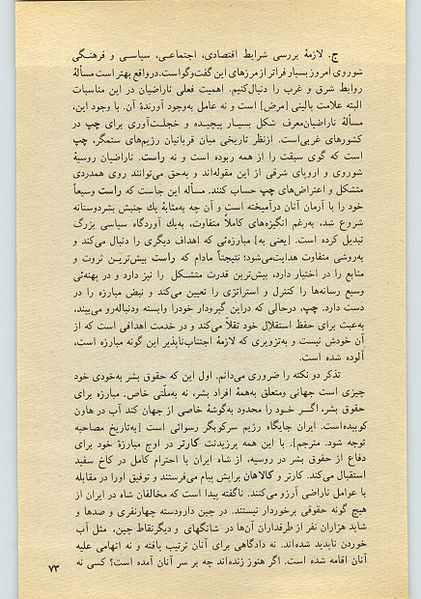 ج. لازمهٔ بررسی شرایط اقتصادی، اجتماعی، سیاسی و فرهنگی
شوروی امروز بسیار فراتر از مرزهای این گفت‌وگوست. درواقع بهتر است مسألهٔ
روابط شرق و غرب را دنبال‌کنیم. اهمیت فعلی ناراضیان در این مناسبات
البته علامت بالینی [مرض] است و نه عامل به‌وجود آورندهٔ آن. با وجود این،
مسألهٔ ناراضیان‌معرف شکل بسیار پیچیده و خجلت‌آوری برای چپ در
کشورهای غربی‌است. ازنظر تاریخی میان قربانیان رژیم‌های ستمگر، چپ
است که گوی سبقت را از همه ربوده است و نه راست. ناراضیان روسیهٔ
شوروی و اروپای شرقی از این مقوله‌اند و به‌حق می‌توانند روی همدردی
متشکل و اعتراض‌های چپ حساب کنند. مسأله این جاست که راست وسیعاً
خود را با آرمان آنان درآمیخته است و آن چه به‌مثابهٔ یك جنبش بشردوستانه
شروع شد، به‌رغم انگیزه‌های کاملاً متفاوت، به‌یك آوردگاه سیاسی بزرگ
تبدیل کرده است. [یعنی به] مبارزه‌ئی که اهداف دیگری را دنبال می‌کند و
به‌روشی متفاوت هدایت‌می‌شود؛ نتیجتاً مادام که راست بیش‌ترین ثروت و
منابع را در اختیار دارد، بیش‌ترین قدرت متشکل را نیز دارد و در پهنه‌ئی
وسیع رسانه‌ها را کنترل و استراتژی را تعیین می‌کند و نبض مبارزه را در
دست دارد. چپ، درحالی که دراین گیرودار خودرا وابسته ودنباله‌رو می‌بیند،
به‌عبث برای حفظ استقلال خود تقلا می‌کند و در خدمت اهدافی است که از
آن خودش نیست و به‌تزویری که لازمهٔ اجتناب‌ناپذیر این گونه مبارزه است،
آلوده شده است.
تذکر دو نکته را ضروری می‌دانم. اول این که حقوق بشر به‌خودی خود
چیزی است جهانی ومتعلق به‌همهٔ افراد بشر، نه به‌ملّتی خاص. مبارزه برای
حقوق بشر، اگر خود را محدود به‌گوشهٔ خاصی از جهان کند آب در هاون
کوبیده‌است. ایران جایگاه رژیم سرکوبگر رسوائی است [به‌تاریخ مصاحبه
توجه شود. مترجم]. با این همه پرزیدنت کارتر در اوج مبارزهٔ خود برای
دفاع از حقوق بشر در روسیه، از شاه ایران با احترام کامل در کاخ سفید
استقبال می‌کند. کارتر و کالاهان برایش پیام می‌فرستند و توفیق اورا در مقابله
با عوامل ناراضی آرزو می‌کنند. ناگفته پیدا است که مخالفان شاه در ایران از
هیچ گونه حقوقی برخوردار نیستند. در چین دارودسته چهارنفری و صدها و
شاید هزاران نفر از طرفداران آن‌ها در شانگهای و دیگرنقاط چین، مثل آب
خوردن ناپدید شده‌اند. نه دادگاهی برای آنان ترتیب یافته و نه اتهامی علیه
آنان اقامه شده است. اگر هنوز زنده‌اند چه بر سر آنان آمده است؟ کسی نه
۷۳